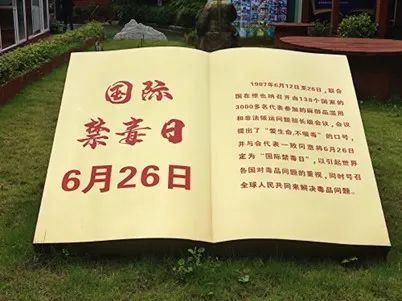 国际
禁毒日
6月26日
1987年6月12日至26日，联合
国在维也纳召开由138个国家的
3000多名代表参加的麻醉品滥用
和非法贩运问题部长级会议，会议
提出了“爱生命，不吸毒”的口号，
并与会代表一致同意将6月26日
定为“国际禁毒日”，以引起世界
各国对毒品问题的重视，同时号召
全球人民共同来解决毒品问题。